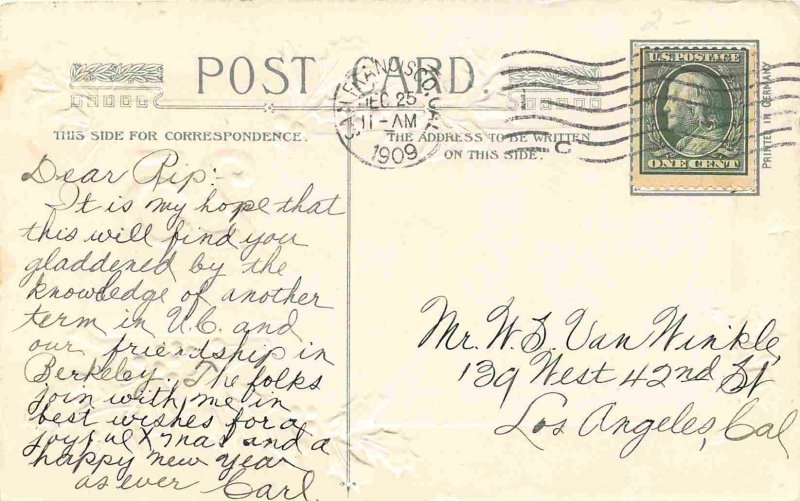 POST CARD.
SAN FRANCISCO, CAL.
DEC 25
11-AM
1909
U.S. POSTAGE
ONE CENT
PRINTED IN GERMANY
THIS SIDE FOR CORRESPONDENCE.
THE ADDRESS TO BE WRITTEN
ON THIS SIDE.
Dear Rip:
It is my hope that
this will find you
gladdened by the
knowledge of another
term in U.C. and
our friendship in
Berkeley. The folks
join with me in
best wishes for a
joyful Xmas and a
happy new year
as ever Carl.
Mr. W. D. Van Winkle,
139 West 42nd St
Los Angeles, Cal